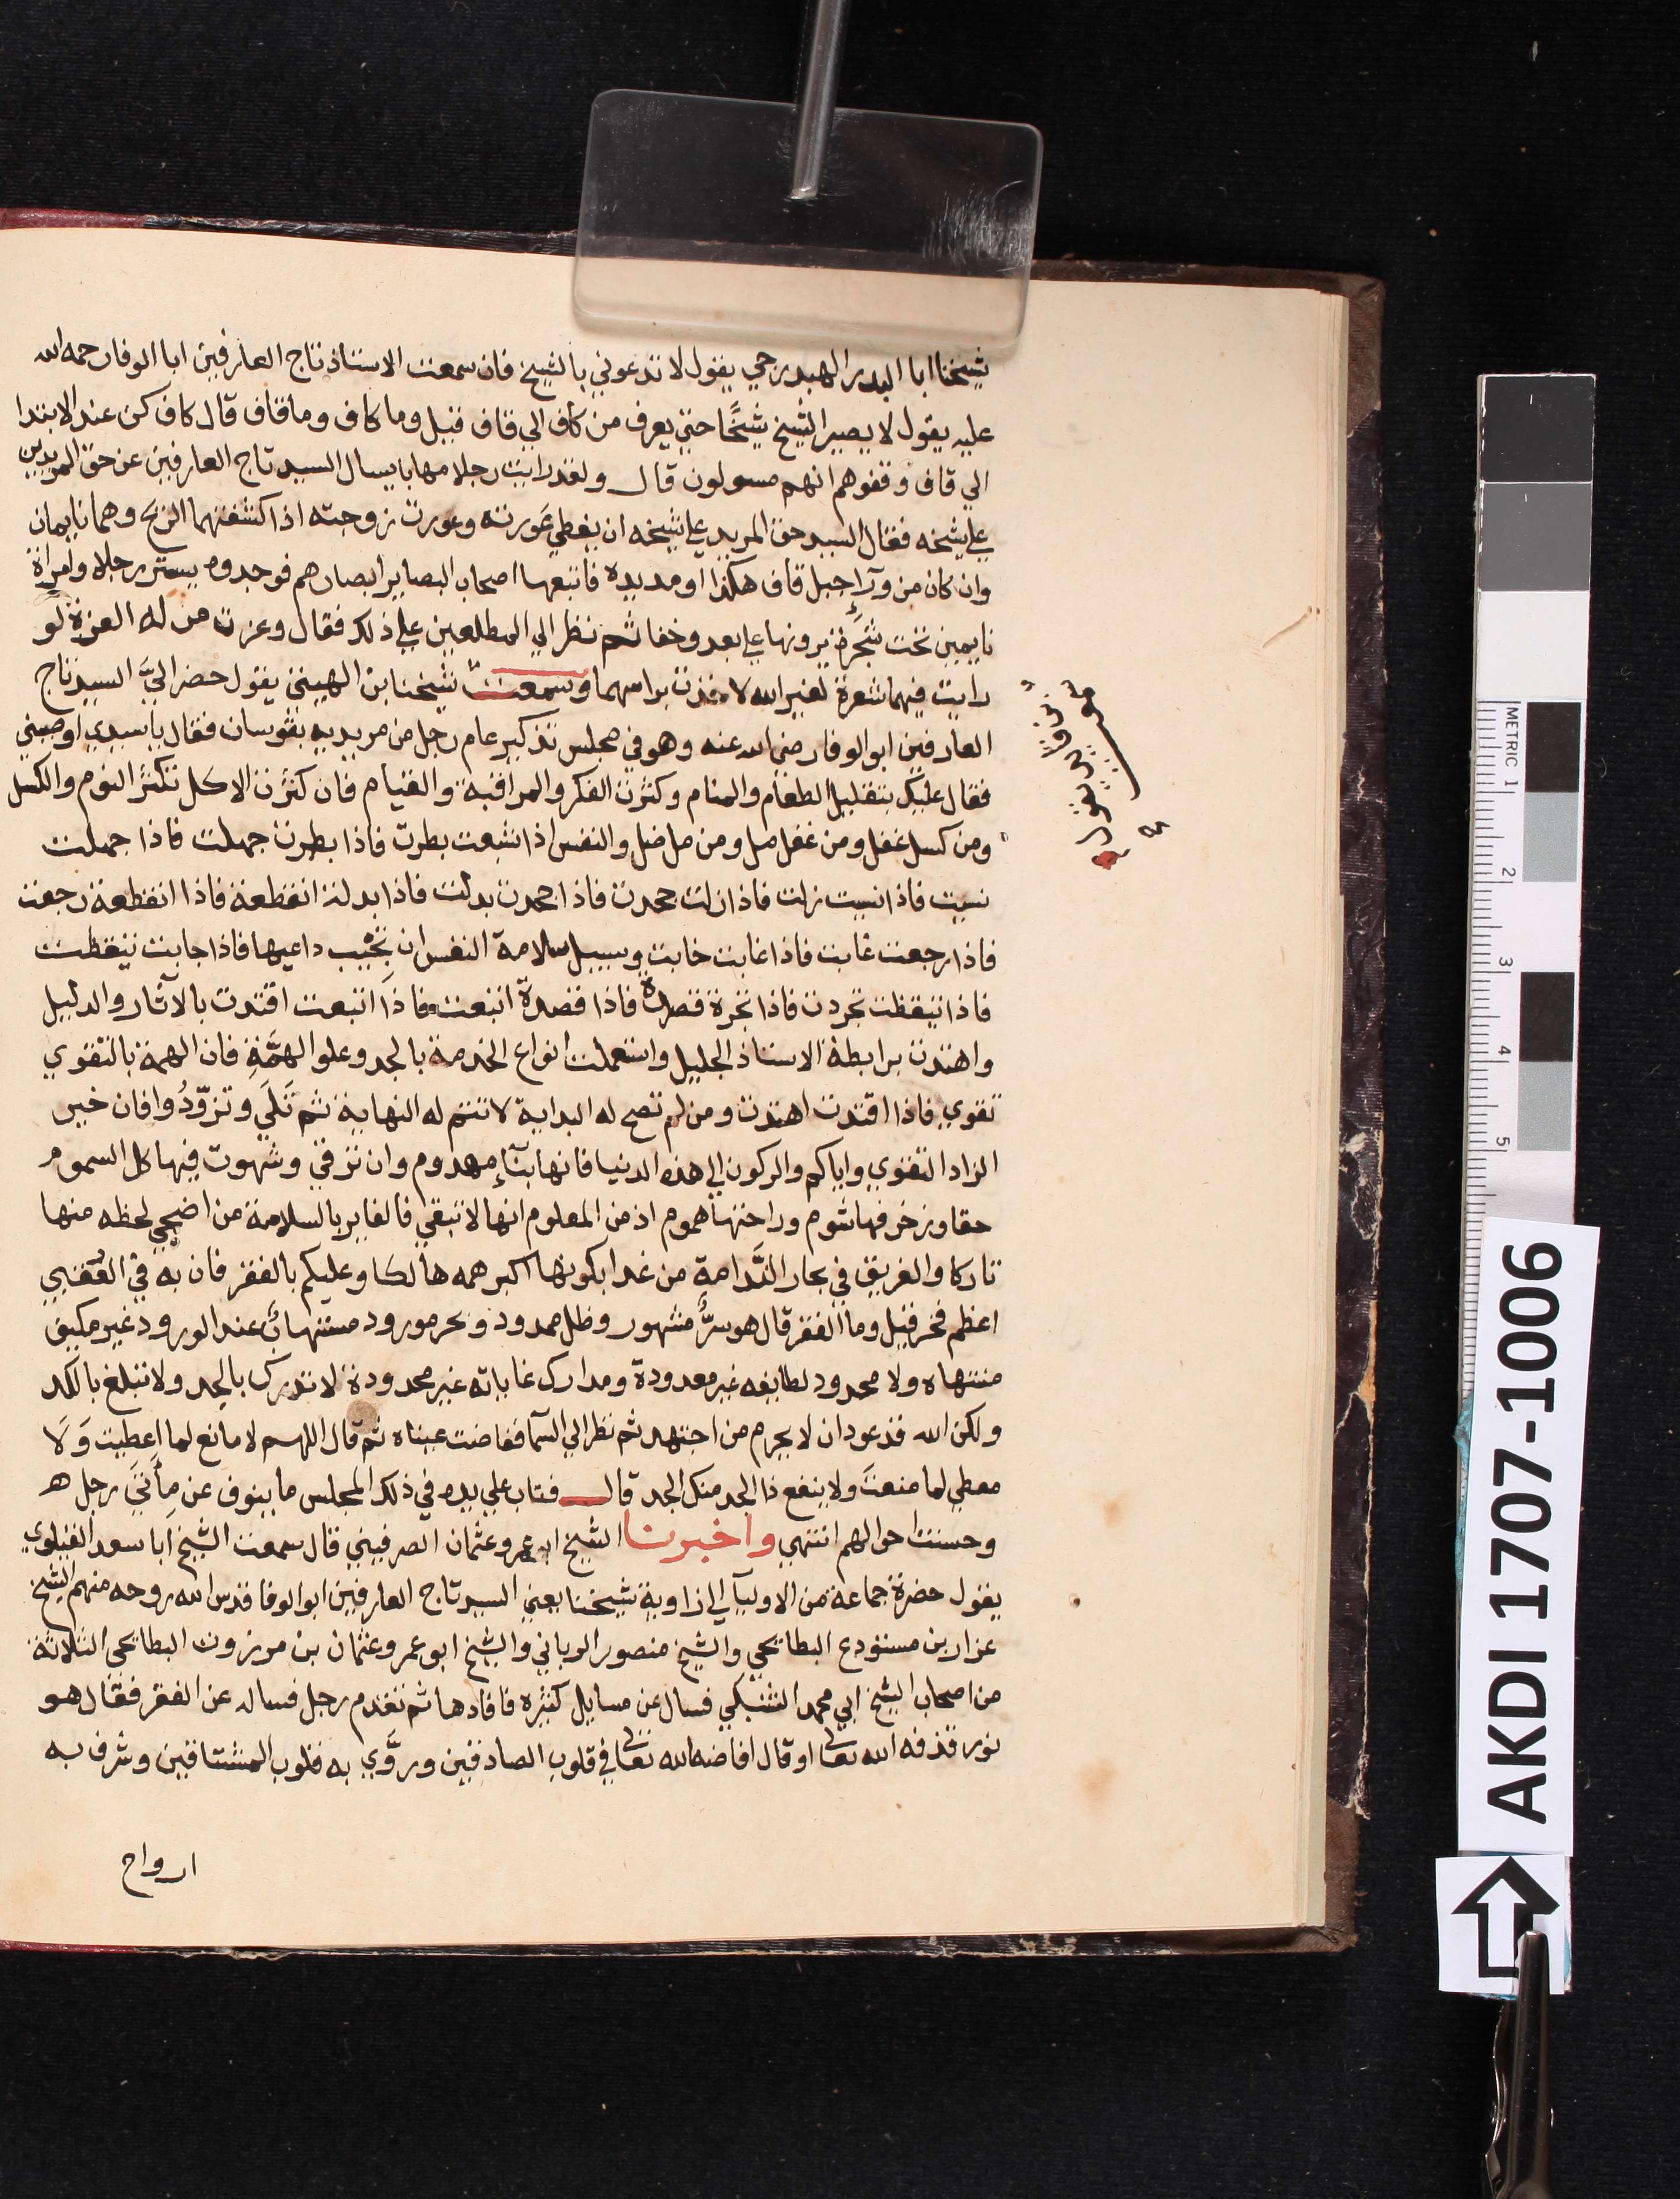 شيخنا ابا البدر الهبدرجي يقول لا تدعوني بالشيخ فان سمعت الاستاذ تاج العارفين ابا الوفا رحمه الله
عليه يقول لا يصير الشيخ شيخًا حتي يعرف من كاف الي قاف قيل وما كاف وما قاف قال كاف كن عند الابتدا
الي قاف وقفوهم انهم مسولون قال ولقد رايت رجلا مهابا يسال السيد تاج العارفين عن حق المريدين
علي شيخه فقال السيد حق المريد علي شيخه ان يغطي عَورته وعورت زوجته اذا كشفتهما الريح وهما نايمان
وان كان من ورآء جبل قاف هكذا اومد يده فاتبعها اصحاب البصاير ابصارهم فوجدوه يستر رجلا وامراة
نايمين تحت شجرة يرونها علي بعد وخفا ثم نظر الي المطلعين علي ذلك فقال وعزت من له العزة لو
رايت فيهما شعرة لغير الله لا راسهما وسمعت شيخنا بن الهيتي يقول حضر اليَّ السيد تاج
العارفين ابو الوفا رضي الله عنه وهو في مجلس تذكير عام رجل من مريديه بقوسان فقال يا سيدي اوصيني
فقال عليك بتقليل الطعام والمنام وكثرت الفكر والمراقبة والقيام فان كثرت الاكل تكثر النوم والكسل
ومن كسل غفل ومن غفل مل ومن مل ضل والنفس اذا شبعت بطرت فاذا بطرت جهلت فاذا جهلت
نسيت فاذا نسيت زلت فاذا زلت جحدت فاذا جحدت بدلت فاذا بدلت انقطعة فاذا انقطعة رجعت
فاذا رجعت غابت فاذا غابت خابت وسبيل سلامة النفس ان تجيب داعيها فاذا جابت تيقظت
فاذا تيقظت تجردت فاذا تجردة قصدة فاذا قصدة اتبعت وفاذا اتبعت اقتدت بالآثار والدليل
واهتدت برابطة الاستاذ الجليل واستعملت انواع الخدمة بالجد وعلو الهمَّةِ فان الهمة بالتقوي
تقوي فاذا اقتدت اهتدت ومن لم تصح له البداية لا تتم له النهاية ثم تَلَي وتزوّدُوا فان خير
الزاد التقوي واياكم والركون الي هذه الدنيا فانها بنآء مهدوم وان تزقي وشهوت فيها كل السموم
حقا وزخرفها شوم وراحتها هموم اذ من المعلوم انها لا تبقي فالفايز بالسلامة من اضحي لحظه منها
تاركا والغريق في بحار الندَّامة من غدا بكونها اكبر همه هالكا وعليكم بالفقر فان به في العقبي
اعظم فخر قيل وما الفقر قال هو سرٌّ مشهور وظل ممدود وبحر مورود عند الورود غير مكيف
منتهاه ولا محدود لطايفه غير معدودة ومدارك غاياته غير محدودة لا تدرك بالجد ولا تبلغ بالكد
ولكن الله قد عود ان لا يحرم من اجتهد ثم نظر الي السمآ ففاضت عيناه ثم قال اللهم لا مانع لما اعطيت وَلَا
معطي لما منعت ولا ينفع ذا الجد منك الجد قال فتاب علي يده في ذلك المجلس ما ينوف عن مأتي رجل
وحسنت احوالهم انتهي واخبرنا الشيخ ابو عمرو عثمان الصرفيني قال سمعت الشيخ ابا سعد القيلوي
يقول حضرة جماعة من الاوليآ الي زاوية شيخنا يعني السيد تاج العارفين ابو الوفا قدس الله روحه منهم الشيخ
عزاز بن مستودع البطايحي والشيخ منصور الرباني والشيخ ابو عمرو عثمان بن مرزوت البطايحي الثلاثة
من اصحاب الشيخ ابي محمد الشنبكي فسال عن مسايل كثيره فافادها ثم تقدم رجل فساله عن الفقر فقال هو
نور قذفه الله تعالى او قال افاضه الله تعالى في قلوب الصادقين وروَّي به قلوب المشتاقين وشرف به
ارواح